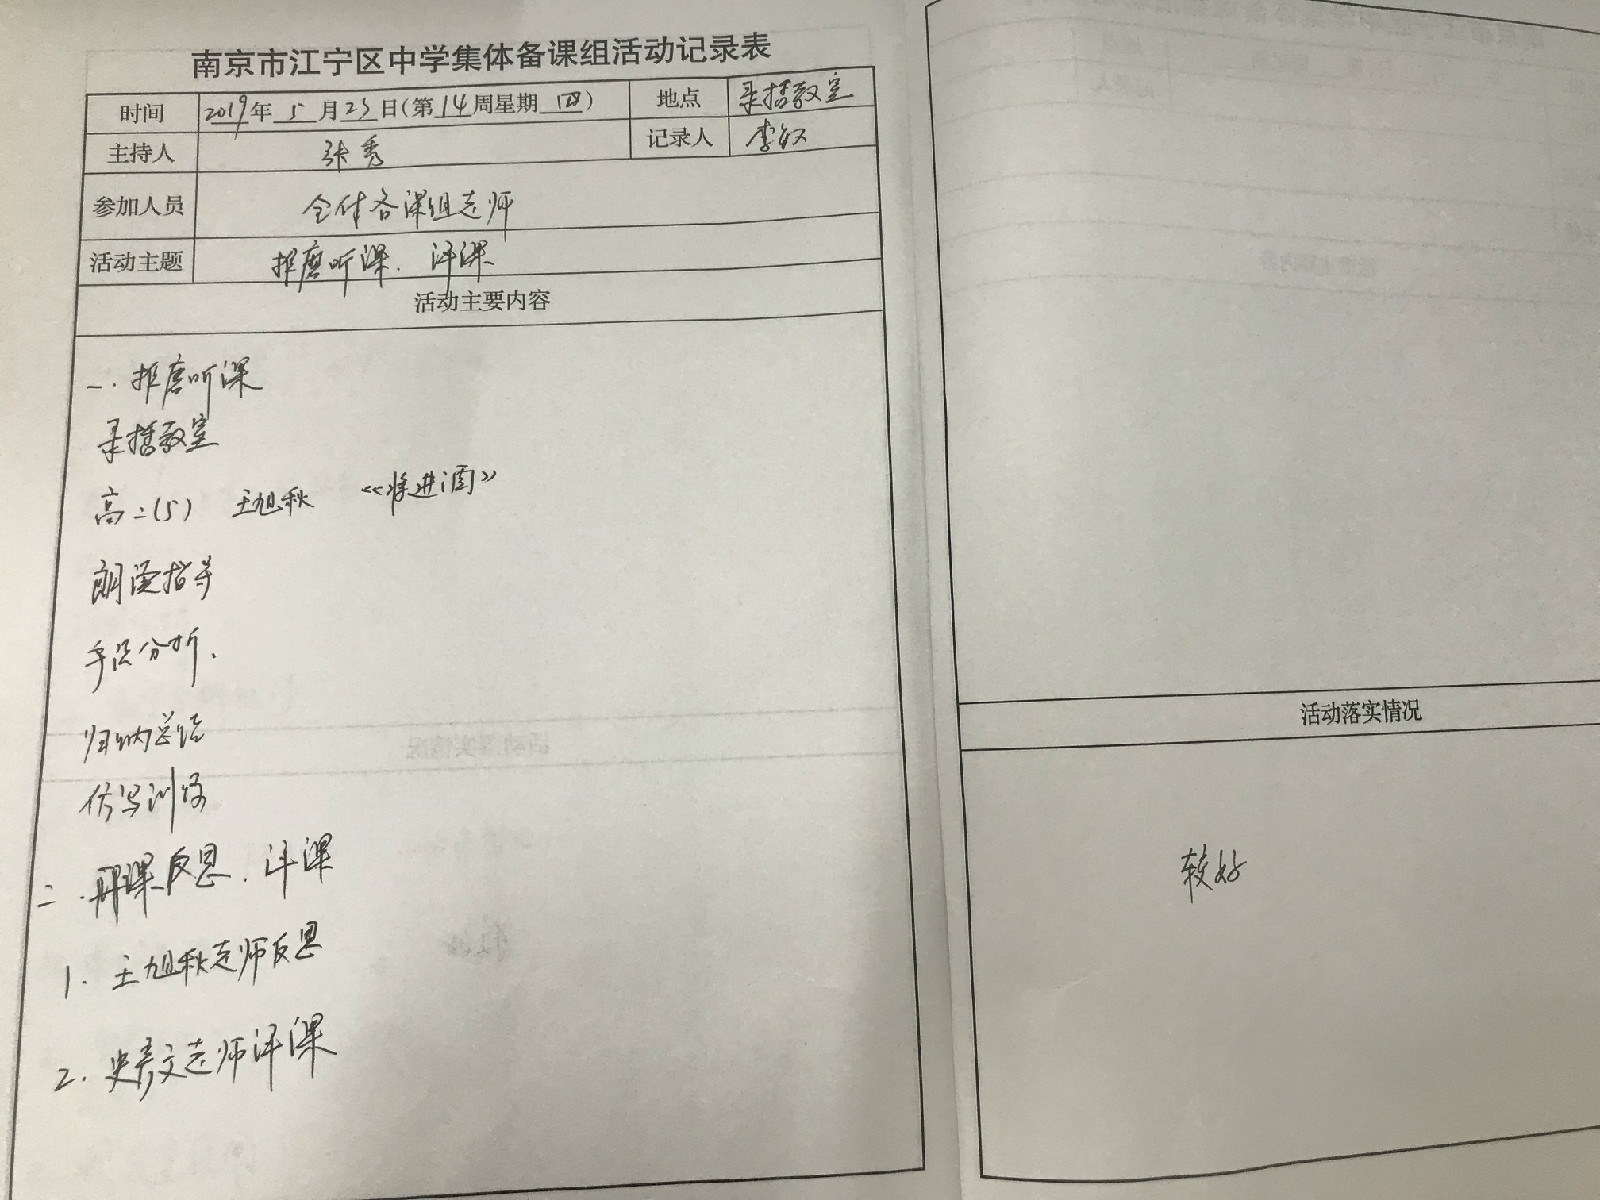 南京市江宁区中学集体备课组活动记录表
时间 2019年 5 月 23 日(第 14 周星期 四 ) 地点 录播教室
主持人 张秀 记录人 李钗
参加人员 全体备课组老师
活动主题 推磨听课、评课
活动主要内容
一、推磨听课
录播教室
高二(5) 王旭秋 《将进酒》
朗读指导
手法分析、
归纳总结
仿写训练
二、开课反思、评课
1. 王旭秋老师反思
2. 史秀文老师评课
活动落实情况
较好